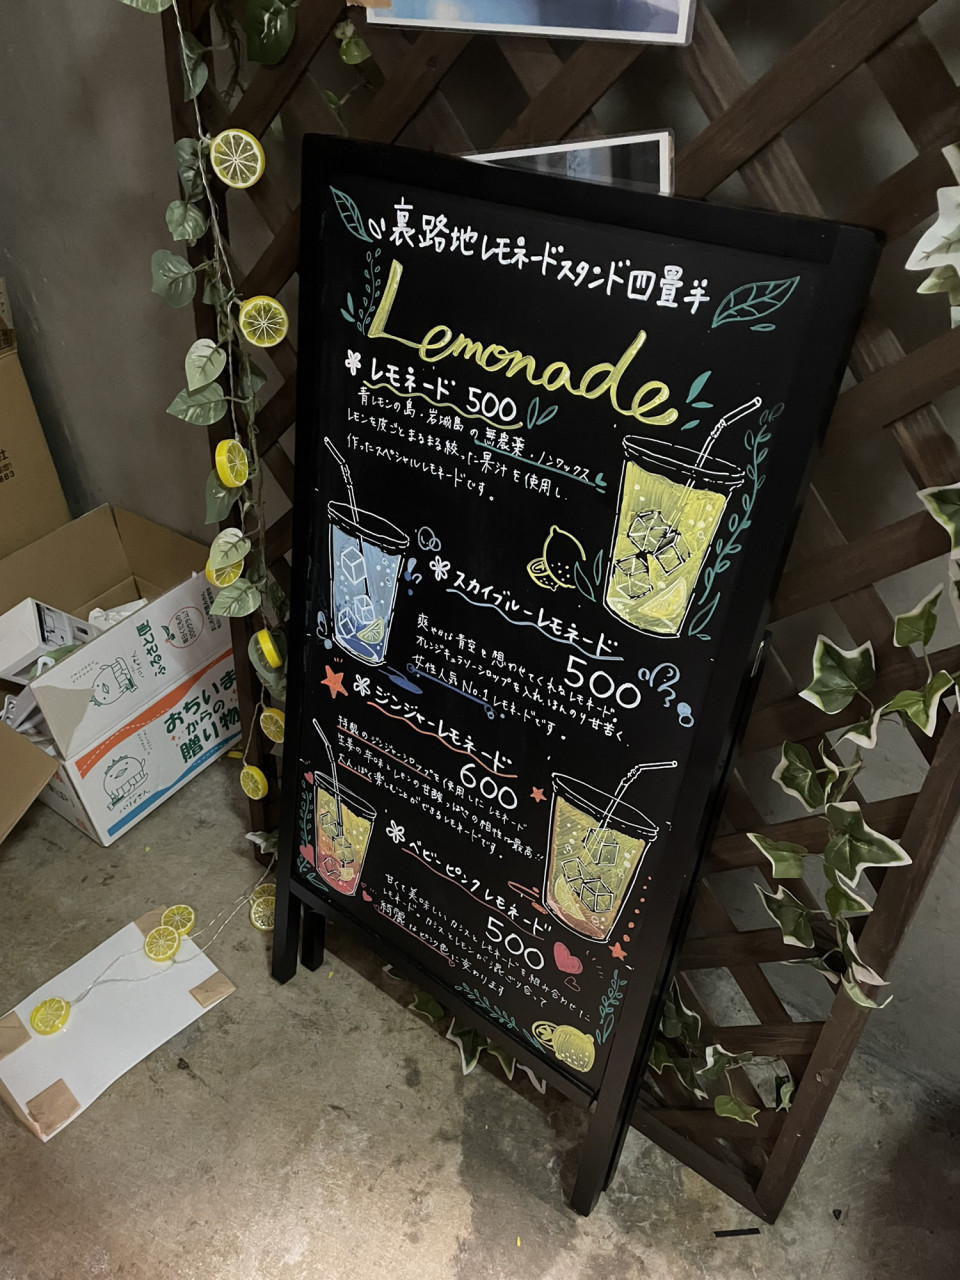 裏路地レモネードスタンド四畳半
Lemonade
レモネード 500
青レモンの島・岩城島の無農薬・ノンワックス
レモンを皮ごとまるまる絞った果汁を使用し、
作ったスペシャルレモネードです。
スカイブルーレモネード
500
爽やかな青空を想わせてくれるレモネード。
オレンジキュラソーシロップを入れ、ほんのり甘苦く、
女性人気No.1レモネードです。
ジンジャーレモネード
600
特製のジンジャーシロップを使用したレモネード
生姜の辛味とレモンの甘酸っぱさの相性が最高!!
大人っぽく楽しむことができるレモネードです。
ベビーピンクレモネード
500
甘くて美味しいカシスとレモネードを組み合わせた
レモネード。カシスとレモンが混ざり合って
綺麗なピンク色に変わります
ふるさと便
おちいま
からの
贈り物